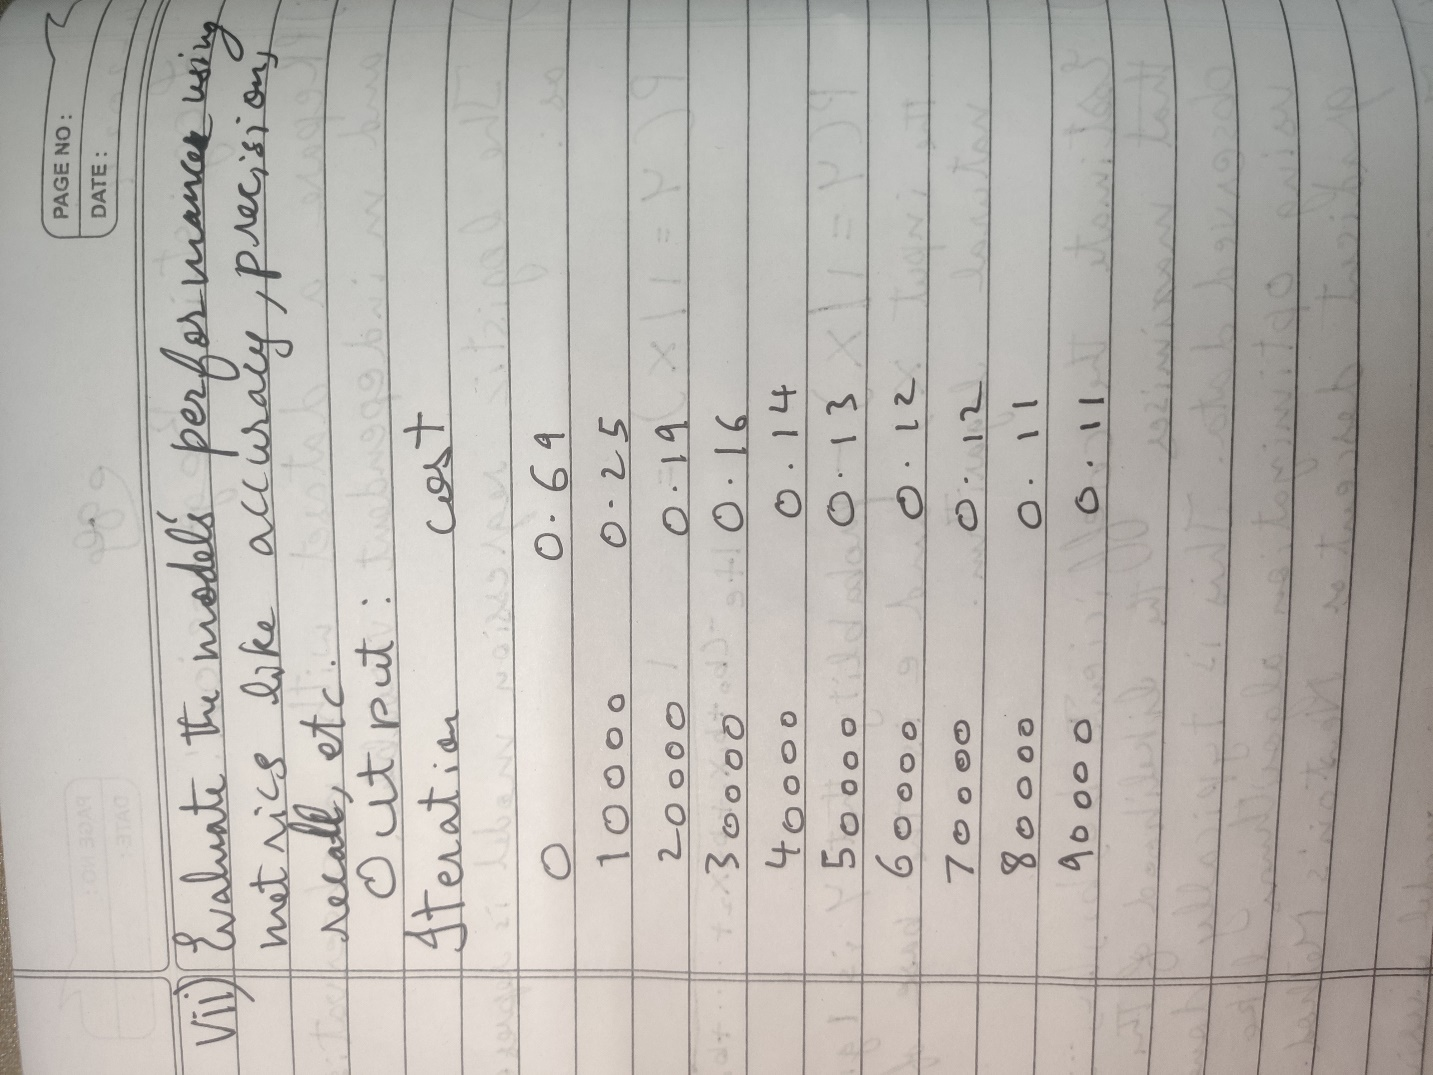 PAGE NO:
DATE:
Vii) Evaluate the model's performances using
metrics like accuraly, precision,
recall, etc.
Output:
Iteration cost
0 0.69
10000 0.25
20000 0.19
30000 0.16
40000 0.14
50000 0.13
60000 0.12
70000 0.12
80000 0.11
90000 0.11